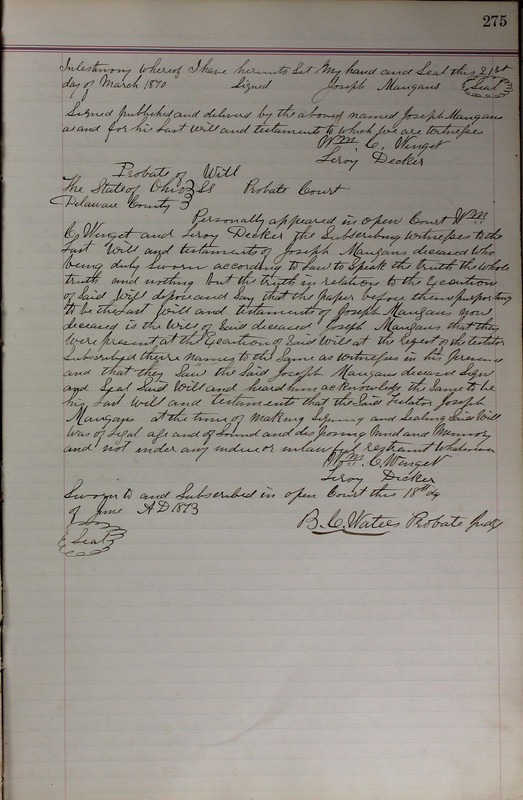 275
In testimony Whereof I have hereunto Set My hand and Seal this 21st
day of March 1870 Signed Joseph Mangans Seal
Signed published and deliverd by the above named Joseph Mangans
as and for his Last Will and testament to which we are witnesses
Wm. C. Winget
Leroy Decker
Probate of Will
The State of Ohio } SS Probate Court
Delaware County }
Personally appeared in open Court Wm
C Winget and Leroy Decker the Subscribing Witnesses to the
Last Will and testament of Joseph Mangans deceased Who
being duly Sworn according to Law to Speak the truth the whole
truth and nothing but the truth in relation to the Execution
of Said Will depose and Say that the paper before them purporting
to be the Last Will and testament of Joseph Mangans now
deceased is the Will of Said deceased Joseph Mangans that they
Were present at the Execution of Said Will at the of the testator
Subscribed there names to the Same as Witnesses in his presence
and that they Saw the Said Joseph Mangans deceased Sign
and Seal Said Will and heard him acknowledge the Same to be
his Last Will and testament that the Said Testator Joseph
Mangans at the time of Making Signing and Sealing Said Will
Was of Legal age and of Sound and disposing Mind and Memory
and not under any undue or unlawful restraint Whatsoever
Wm. C. Winget
Leroy Decker
Sworn to and Subscribed in open Court this 18th dy
of June AD 1873
B. C. Waters Probate Judge
Seal